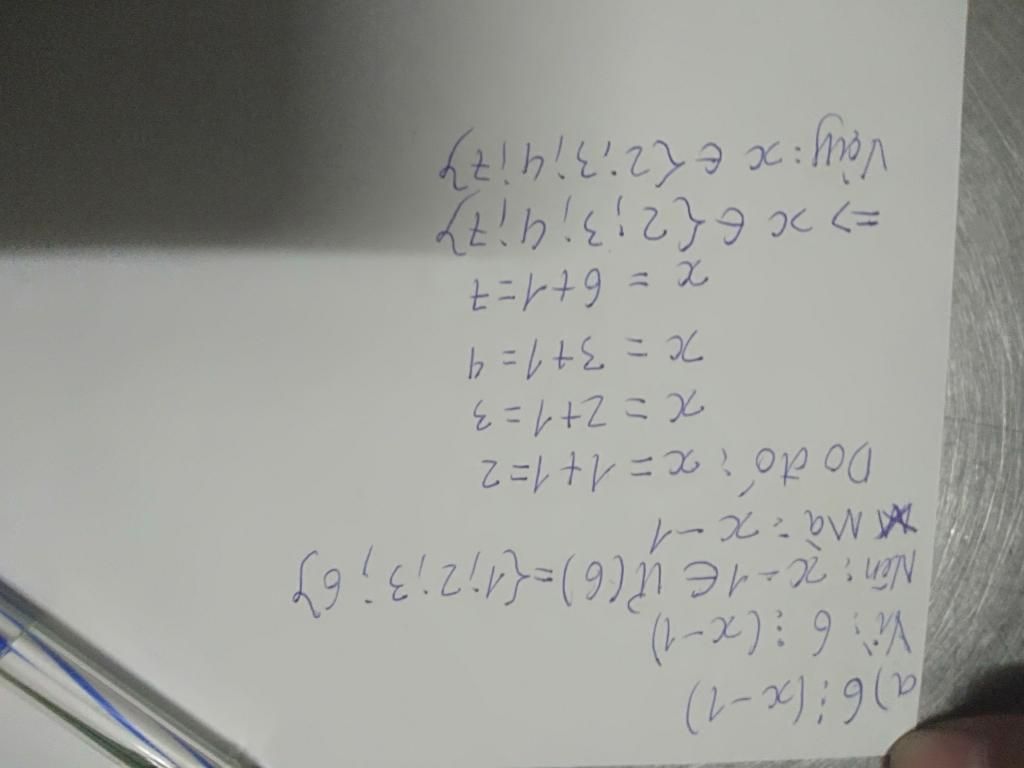 a) 6 ⋮ (x-1)
Vì: 6 ⋮ (x-1)
Nên: x-1 ∈ Ư(6) = {1; 2; 3; 6}
Mà: x-1
Do đó: x = 1+1=2
x = 2+1=3
x = 3+1=4
x = 6+1=7
=> x ∈ {2; 3; 4; 7}
Vậy: x ∈ {2; 3; 4; 7}